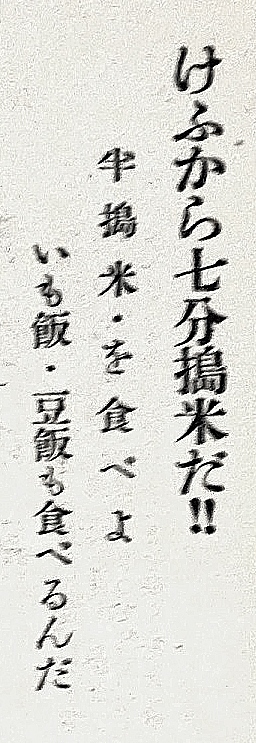 けふから七分搗米だ!!
半搗米・を食べよ
いも飯・豆飯も食べるんだ